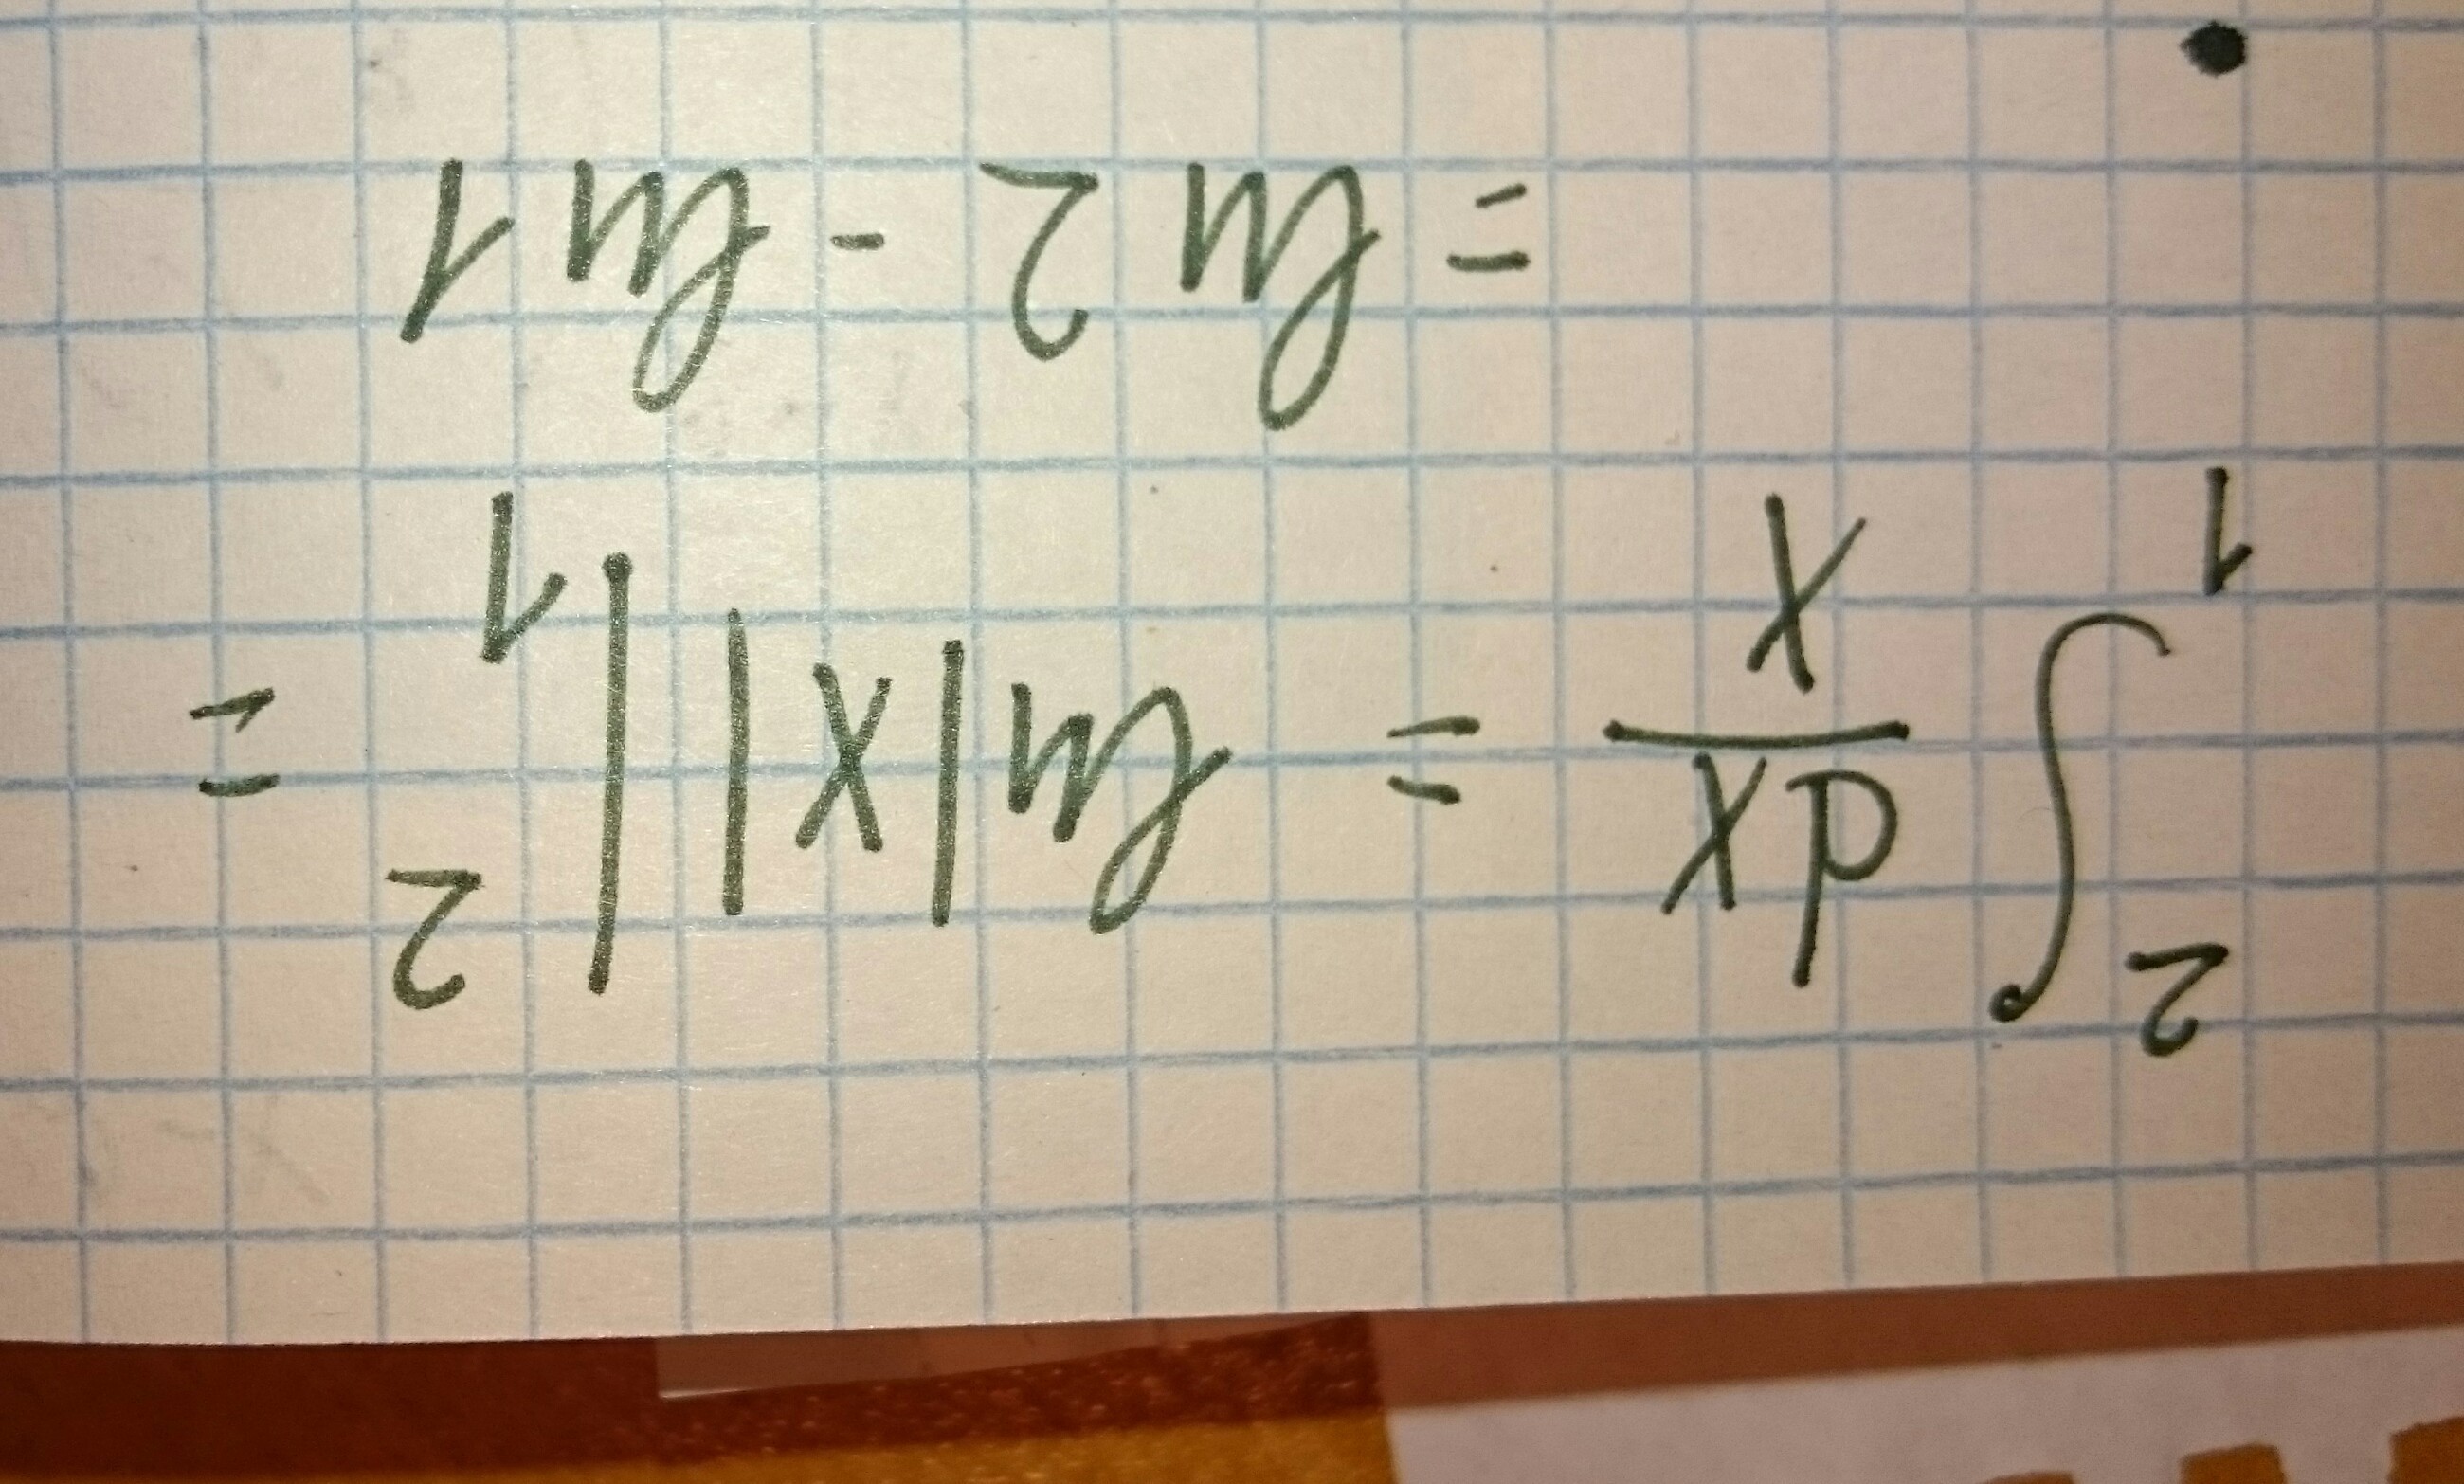 ∫₁² dx/x = ln|x| |₁² =
= ln 2 - ln 1